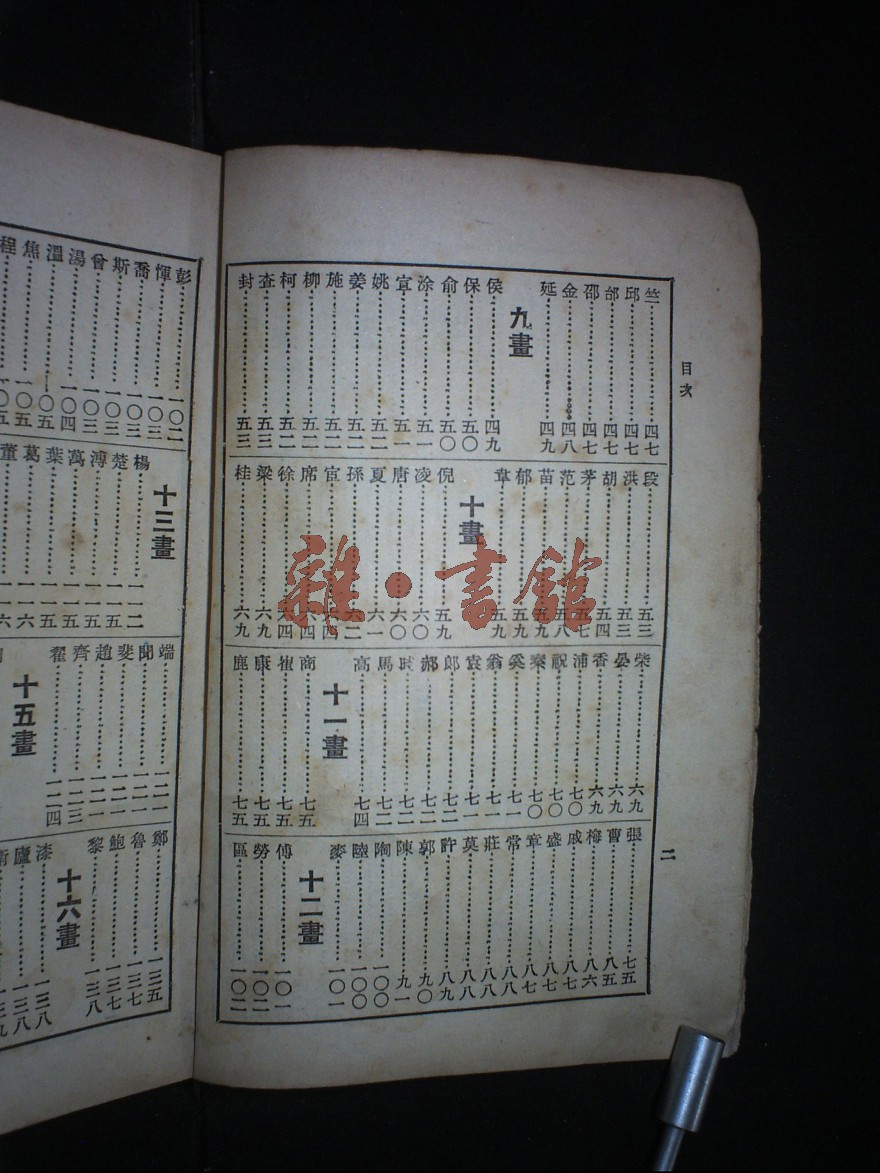 目次
竺 四七
邱 四七
邰 四七
邵 四七
金 四八
延 四九
九畫
侯 四九
保 五〇
俞 五〇
涂 五一
宣 五一
姚 五二
姜 五二
施 五二
柳 五二
柯 五二
查 五三
封 五三
段 五三
洪 五三
胡 五四
茅 五七
范 五八
苗 五九
郁 五九
韋 五九
十畫
倪 五九
凌 六〇
唐 六〇
夏 六一
孫 六二
宦 六四
席 六四
徐 六四
梁 六九
桂 六九
柴 六九
晏 六九
香 六九
浦 七〇
祝 七〇
秦 七〇
奚 七一
翁 七一
袁 七一
郎 七二
郝 七二
時 七二
馬 七二
高 七四
十一畫
商 七五
崔 七五
康 七五
鹿 七五
張 七五
曹 八五
梅 八六
戚 八七
盛 八七
章 八七
常 八八
莊 八八
莫 八八
許 八九
郭 九〇
陳 九一
陶 一〇〇
陸 一〇〇
麥 一〇一
十二畫
傅 一〇一
勞 一〇二
區 一〇二
二
彭 一〇二
惲 一〇三
喬 一〇三
斯 一〇三
曾 一〇三
湯 一〇四
溫 一〇五
焦 一〇五
程
十三畫
楊 一一二
楚 一一五
溥 一一五
萬 一一五
葉 一一五
葛 一一六
董
端 一二一
聞 一二一
斐 一二一
趙 一二一
齊 一二三
翟 一二四
十五畫
鄭 一三五
魯 一三七
鮑 一三七
黎 一三八
十六畫
漆 一三八
盧 一三八
衛
雜·書館